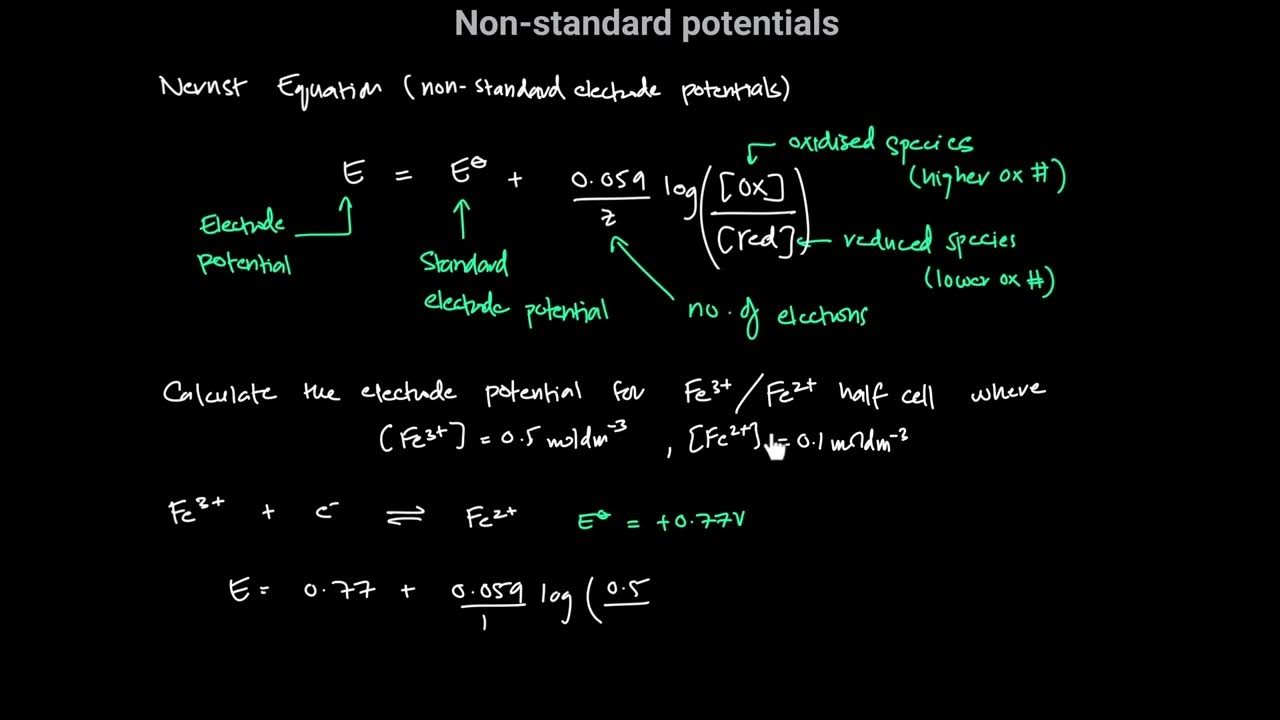 Non-standard potentials
Nernst Equation (non-standard electrode potentials)
oxidised species
(higher ox #)
E = E⦵ + 0.059/z log([ox]/[red])
Electrode
potential
Standard
electrode potential
no. of electrons
reduced species
(lower ox #)
Calculate the electrode potential for Fe³⁺/Fe²⁺ half cell where
[Fe³⁺] = 0.5 moldm⁻³ , [Fe²⁺] = 0.1 moldm⁻³
Fe³⁺ + e⁻ ⇌ Fe²⁺ E⦵ = +0.77V
E = 0.77 + 0.059/1 log (0.5/